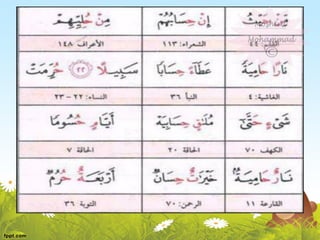 مِّنْ حَيْثُ إِنْ حِسَابُهُمْ مِنْ حُلِيِّهِمْ
Mohammad
القلم: ٤٤ الشعراء: ١١٣ الأعراف ١٤٨
نَارًا حَامِيَةً عَطَآءً حِسَابًا سَبِيلًا ٢٢ حُرِّمَتْ
الغاشية: ٤ النبأ ٣٦ النساء: ٢٢ - ٢٣
شَىْءٍ حَتَّىٰ مُلَـٰقٍ حِسَابِيَهْ أَيَّامٍ حُسُومًا
الكهف ٧٠ الحاقة ٢٠ الحاقة ٧
نَارٌ حَامِيَةٌ خَيْرَٰتٌ حِسَانٌ أَرْبَعَةٌ حُرُمٌ
القارعة ١١ الرحمن: ٧٠ التوبة ٣٦
fppt.com